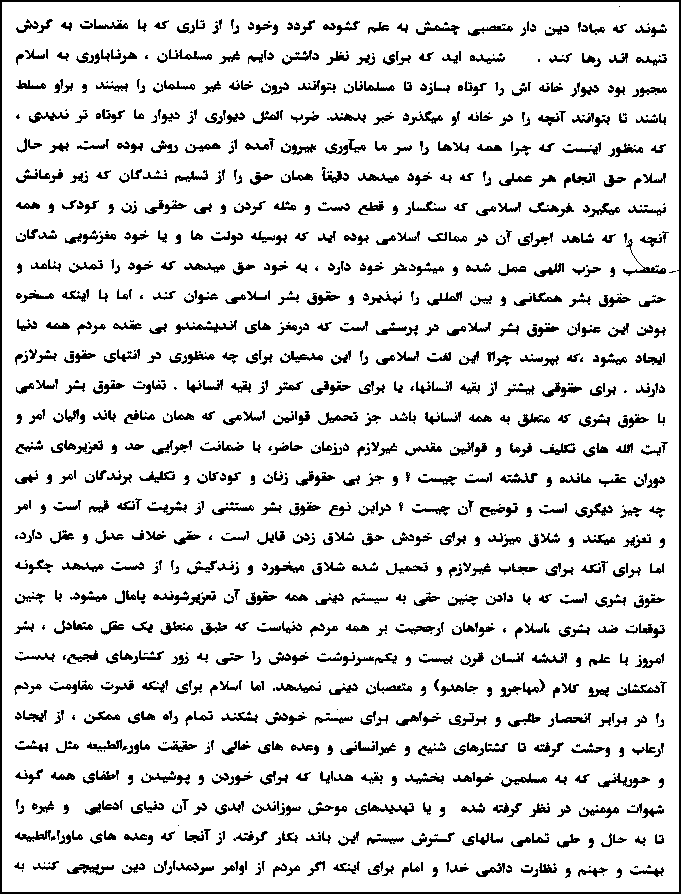 شوند که مبادا دین دار متعصبی چشمش به علم گشوده گردد وخود را از تاری که با مقدسات به گردش
تنیده اند رها کند . شنیده اید که برای زیر نظر داشتن دایم غیر مسلمانان ، هرناباوری به اسلام
مجبور بود دیوار خانه اش را کوتاه بسازد تا مسلمانان بتوانند درون خانه غیر مسلمان را ببینند و براو مسلط
باشند تا بتوانند آنچه را در خانه او میگذرد خبر بدهند. ضرب المثل دیواری از دیوار ما کوتاه تر ندیدی ،
که منظور اینست که چرا همه بلاها را سر ما میآوری ،بیرون آمده از همین روش بوده است. بهر حال
اسلام حق انجام هر عملی را که به خود میدهد دقیقاً همان حق را از تسلیم نشدگان که زیر فرمانش
نیستند میگیرد .فرهنگ اسلامی که سنگسار و قطع دست و مثله کردن و بی حقوقی زن و کودک و همه
آنچه را که شاهد اجرای آن در ممالک اسلامی بوده اید که بوسیله دولت ها و یا خود مغزشویی شدگان
متعصب و حزب اللهی عمل شده و میشود،در خود دارد ، به خود حق میدهد که خود را تمدن بنامد و
حتی حقوق بشر همگانی و بین المللی را نپذیرد و حقوق بشر اسلامی عنوان کند ، اما با اینکه مسخره
بودن این عنوان حقوق بشر اسلامی در پرسشی است که درمغز های اندیشمندو بی عقده مردم همه دنیا
ایجاد میشود ،که بپرسند چرا؟ این لغت اسلامی را این مدعیان برای چه منظوری در انتهای حقوق بشرلازم
دارند . برای حقوقی بیشتر از بقیه انسانها، یا برای حقوقی کمتر از بقیه انسانها . تفاوت حقوق بشر اسلامی
با حقوق بشری که متعلق به همه انسانها باشد جز تحمیل قوانین اسلامی که همان منافع باند والیان امر و
آیت الله های تکلیف فرما و قوانین مقدس غیرلازم درزمان حاضر، با ضمانت اجرایی حد و تعزیرهای شنیع
دوران عقب مانده و گذشته است چیست ؟ و جز بی حقوقی زنان و کودکان و تکلیف برندگان امر و نهی
چه چیز دیگری است و توضیح آن چیست ؟ دراین نوع حقوق بشر مستثنی از بشریت آنکه قیم است و امر
و تعزیر میکند و شلاق میزند و برای خودش حق شلاق زدن قایل است ، حقی خلاف عدل و عقل دارد،
اما برای آنکه برای حجاب غیرلازم و تحمیل شده شلاق میخورد و زندگیش را از دست میدهد چگونه
حقوق بشری است که با دادن چنین حقی به سیستم دینی همه حقوق آن تعزیرشونده پامال میشود. با چنین
توقعات ضد بشری ،اسلام ، خواهان ارجحیت بر همه مردم دنیاست که طبق منطق یک عقل متعادل ، بشر
امروز با علم و اندشه انسان قرن بیست و یکم،سرنوشت خودش را حتی به زور کشتارهای فجیع، بدست
آدمکشان پیرو کلام (مهاجرو و جاهدو) و متعصبان دینی نمیدهد. اما اسلام برای اینکه قدرت مقاومت مردم
را در برابر انحصار طلبی و برتری خواهی برای سیستم خودش بشکند تمام راه های ممکن ، از ایجاد
ارعاب و وحشت گرفته تا کشتارهای شنیع و غیرانسانی و وعده های خالی از حقیقت ماورءالطبیعه مثل بهشت
و حوریانی که به مسلمین خواهد بخشید و بقیه هدایا که برای خوردن و پوشیدن و اطفای همه گونه
شهوات مومنین در نظر گرفته شده و یا تهدیدهای موحش سوزاندن ابدی در آن دنیای ادعایی و غیره را
تا به حال و طی تمامی سالهای گسترش سیستم این باند بکار گرفته. از آنجا که وعده های ماوراءالطبیعه
بهشت و جهنم و نظارت دائمی خدا و امام برای اینکه اگر مردم از اوامر سردمداران دین سرپیچی کنند به